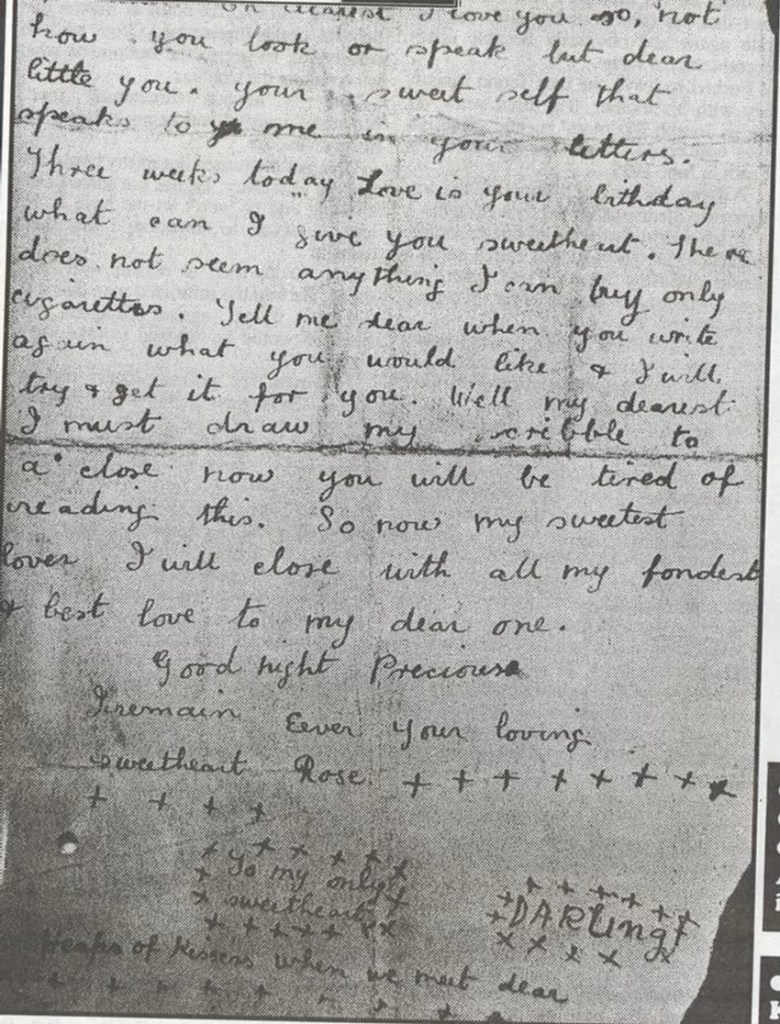 dearest I love you so, not
how you look or speak but dear
little you. your sweet self that
speaks to me in your letters.
Three weeks today Love is your bithday
what can I give you sweetheart. There
does not seem anything I can buy only
cigarettes. Tell me dear when you write
again what you would like & I will
try & get it for you. Well my dearest
I must draw my scribble to
a close now you will be tired of
reading this. So now my sweetest
lover I will close with all my fondest
& best love to my dear one.
Good night Precious
I remain Eever your loving
sweetheart Rose. + + + + + + + x
+ + + +
To my only
sweetheart
DARLING
Heaps of Kissess when we meet dear